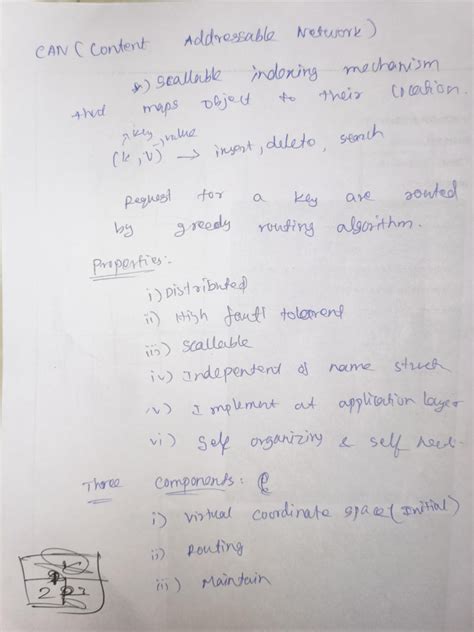 CAN (Content Addressable Network)
Scallable indexing mechanism
that maps object to their location.
key, value
(k, v) → insert, delete, search
Request for a key are routed
by greedy routing algorithm.
Properties:-
i) Distributed
ii) High fault tolerent
iii) Scallable
iv) Independend of name struch
v) Implement at application layer
vi) Self organizing & self
Three Components:
i) Virtual Coordinate space (Initial)
ii) Routing
iii) Maintain
2